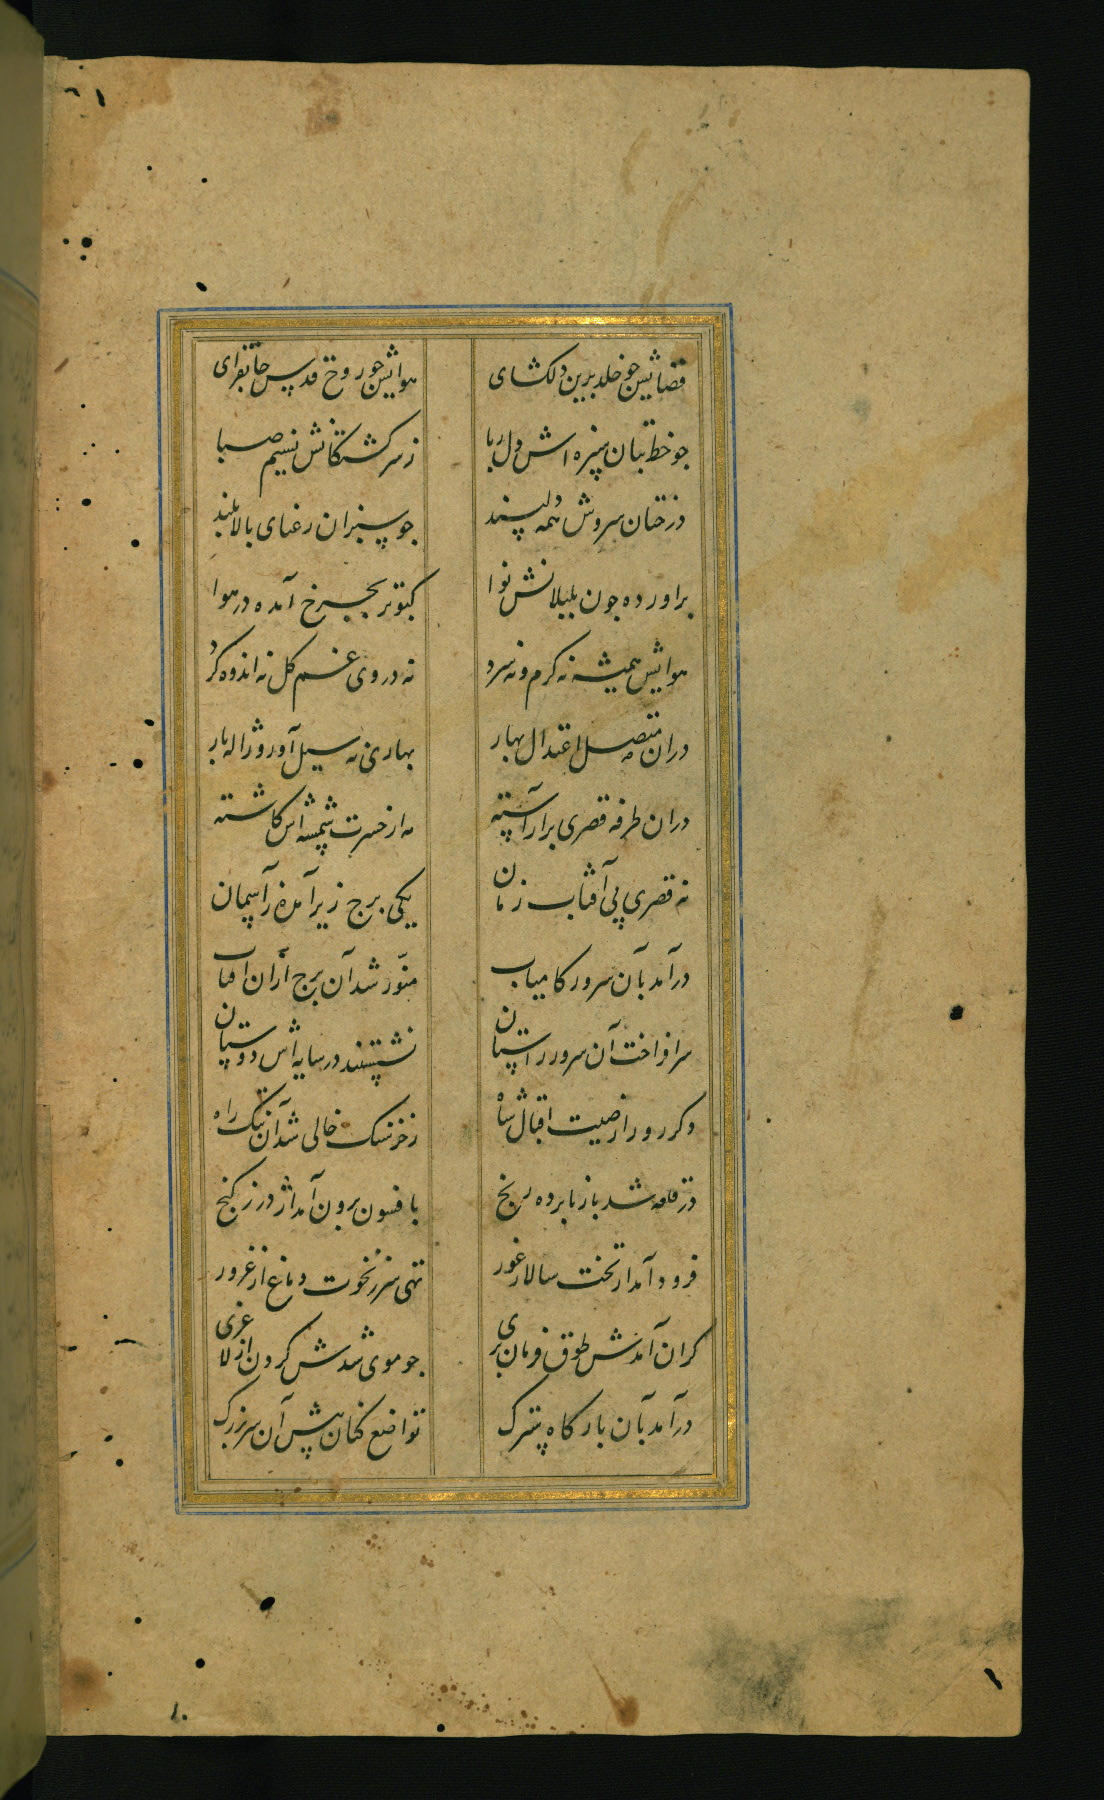 فضایش چو خلد برین دلکشای هوایش چو روح قدس جانفزای
چو خط بتان سبزه اش دل ربا ز سرگشتگانش نسیم صبا
درختان سروش همه دلپسند چو سبزان رعنای بالا بلند
برآورده چون بلبلانش نوا کبوتر بچرخ آمده در هوا
هوایش همیشه نه گرم و نه سرد نه در وی غم گل نه اندوه گرد
دران متصل اعتدال بهار بهاری نه سیل آور و ژاله بار
دران طرفه قصری برآراسته مه از حسرت شمسه اش کاسته
نه قصری پی آفتاب زمان یکی برج زیر آمده ز آسمان
درآمد بآن سرور کامیاب منوّر شد آن برج ازان آفتاب
سرافراخت آن سرور راستان نشستند در سایه اش دوستان
دگر روز از صیت اقبال شاه ز خرسنگ خالی شد آن تنگ راه
در قلعه شد باز نابرده رنج بافسون برون آمد اژدر ز گنج
فرود آمد از تخت سالار غور تهی سر ز نخوت دماغ از غرور
گران آمدش طوق فرمان بری چو موی شدش گردن از لاغری
درآمد بآن بارگاه سترک تواضع کنان پیش آن سر بزرگ